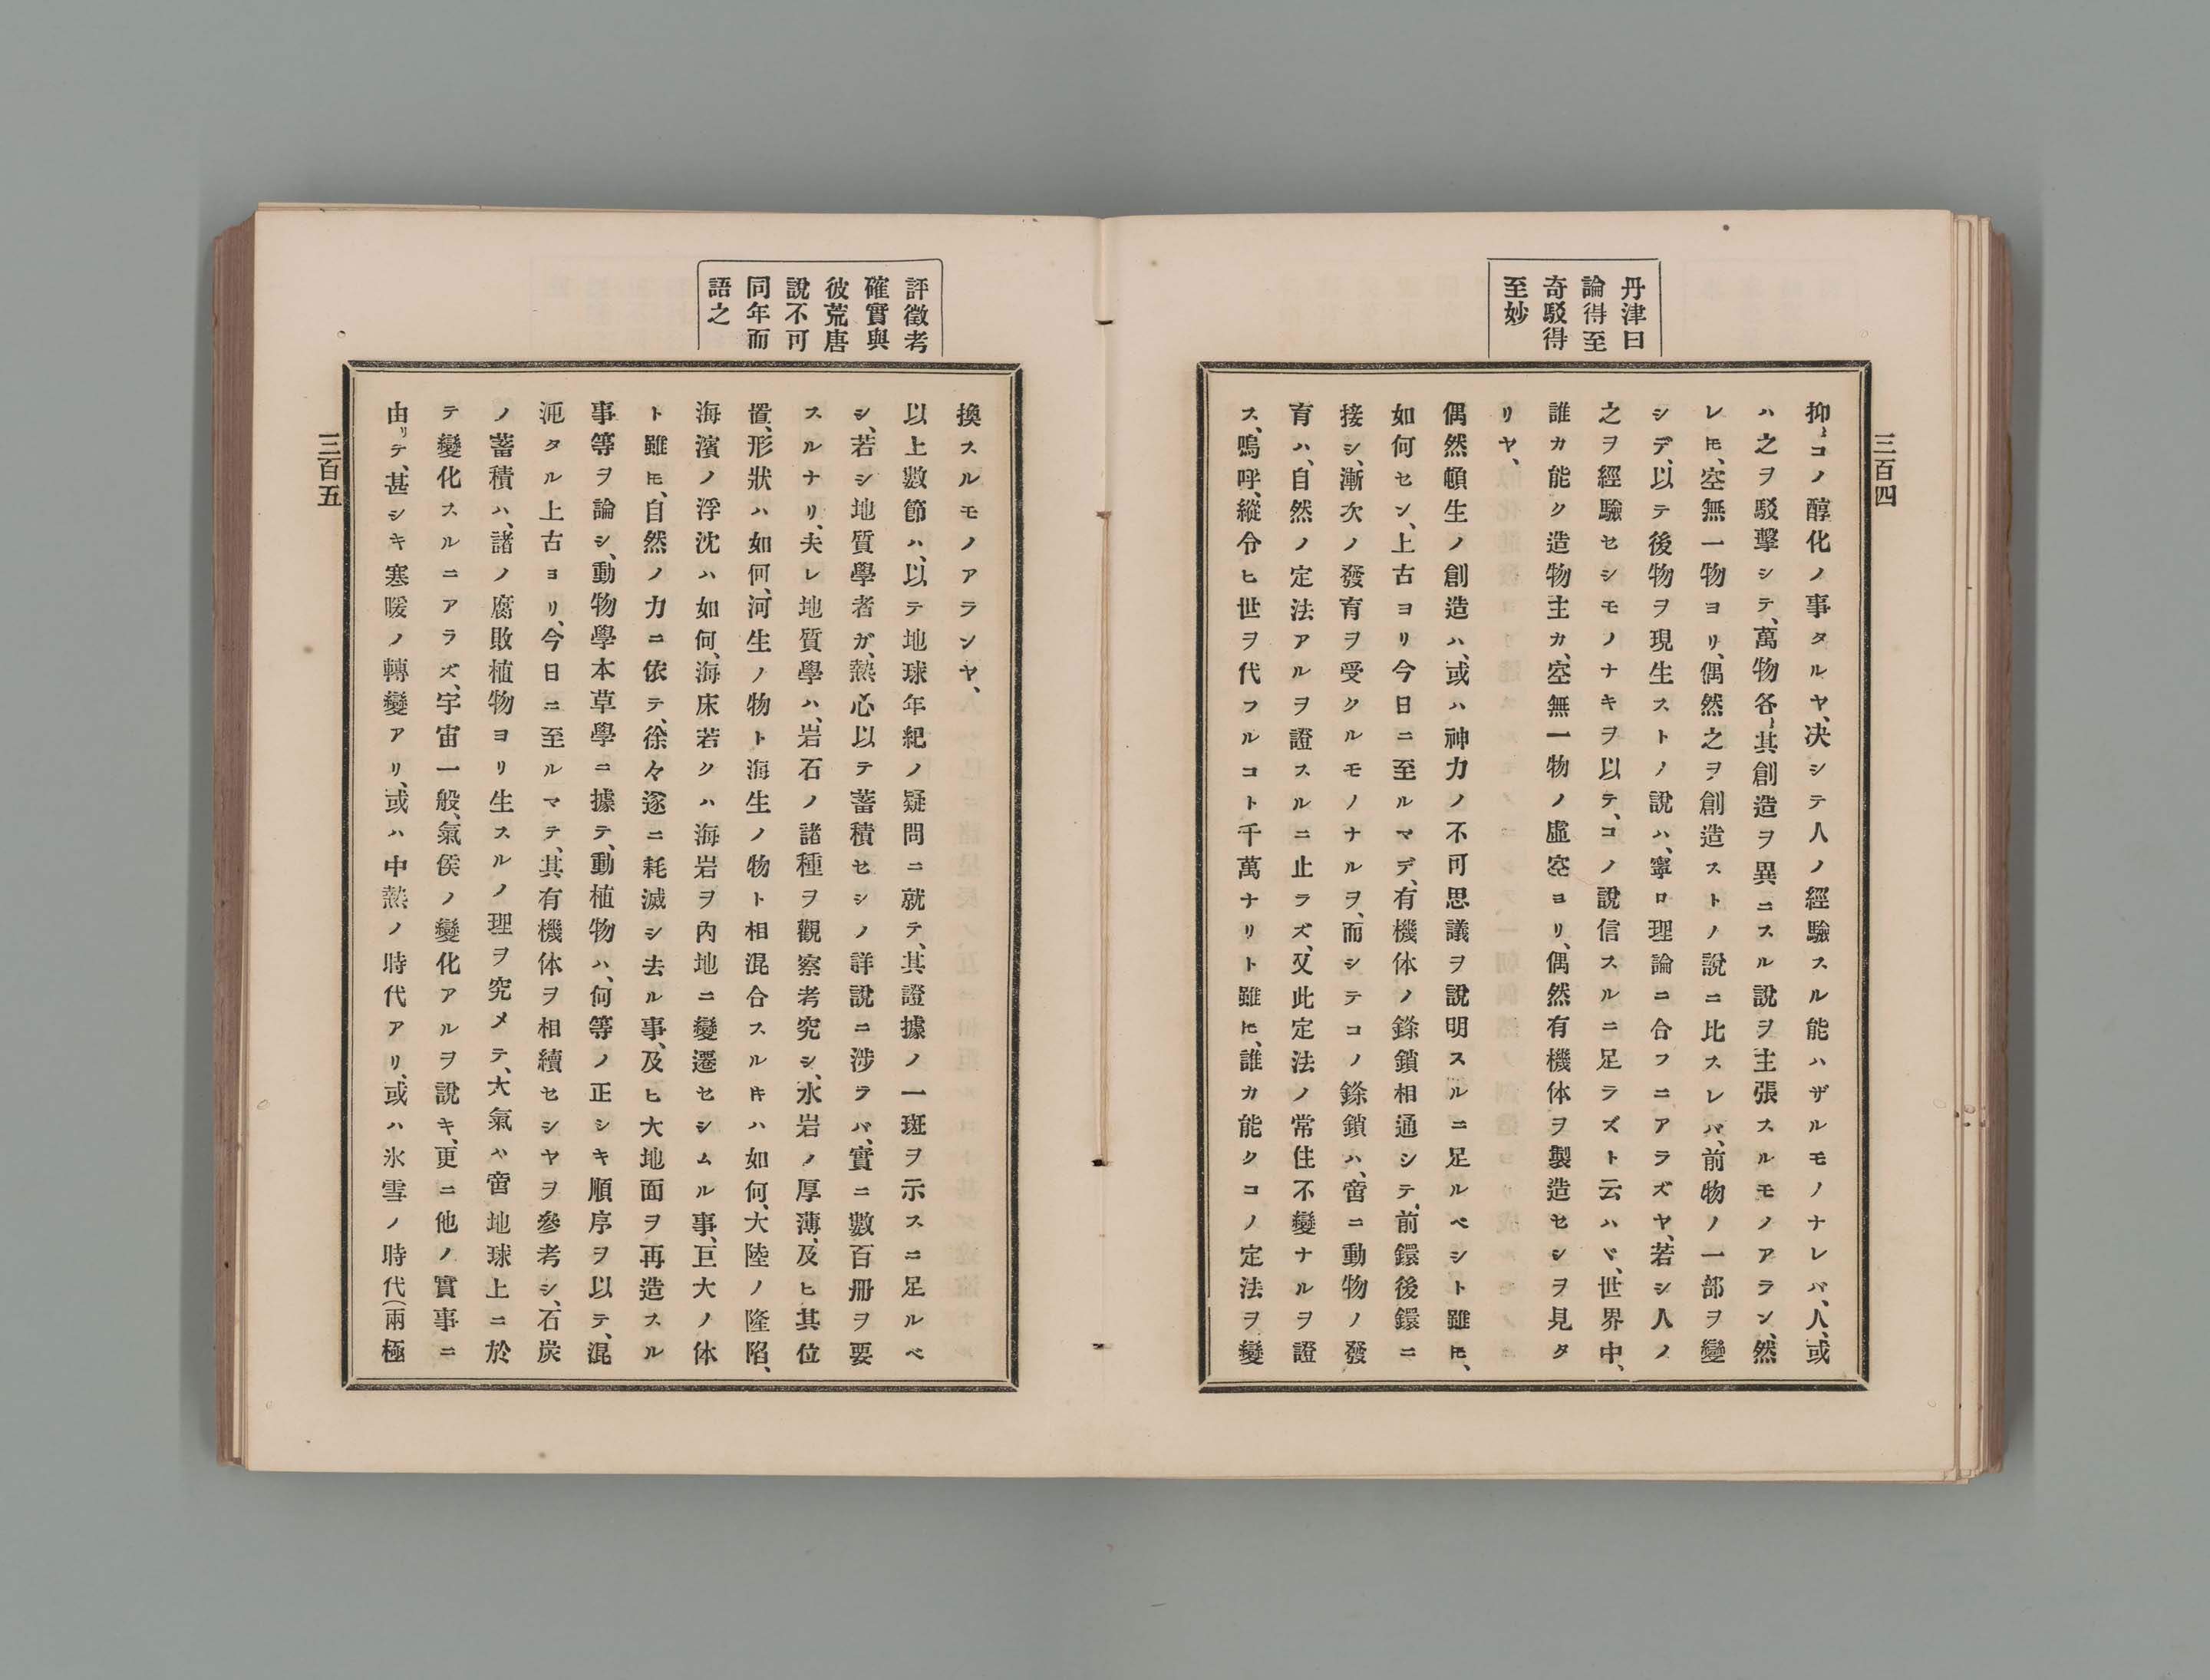 三百四
丹津曰
論得至
奇駁得
至妙
抑〻コノ醇化ノ事タルヤ、決シテ人ノ經驗スル能ハザルモノナレバ、人、或
ハ之ヲ駁擊シテ、萬物各〻其創造ヲ異ニスル說ヲ主張スルモノアラン、然
レㇳモ、空無一物ヨリ、偶然之ヲ創造ストノ說ニ比スレバ、前物ノ一部ヲ變
シデ、以テ後物ヲ現生ストノ說ハ、寧ロ理論ニ合フニアラズヤ、若シ人ノ
之ヲ經驗セシモノナキヲ以テ、コノ說信スルニ足ラズト云ハヾ、世界中、
誰カ能ク造物主カ、空無一物ノ虛空ヨリ、偶然有機体ヲ製造セシヲ見タ
リヤ、
偶然頓生ノ創造ハ、或ハ神力ノ不可思議ヲ說明スルニ足ルベシト雖𪜈、
如何セン、上古ヨリ今日ニ至ルマデ、有機体ノ鎍鎖相通シテ、前鐶後鐶ニ
接シ、漸次ノ發育ヲ受クルモノナルヲ、而シテコノ鎍鎖ハ、啻ニ動物ノ發
育ハ、自然ノ定法アルヲ證スルニ止ラズ、又此定法ノ常住不變ナルヲ證
ス、嗚呼、縱令ヒ世ヲ代フルコト千萬ナリト雖𪜈、誰カ能クコノ定法ヲ變
三百五
評徵考
確實與
彼荒唐
說不可
同年而
語之
換スルモノアランヤ、
以上數節ハ、以テ地球年紀ノ疑問ニ就テ、其證據ノ一斑ヲ示スニ足ルベ
シ、若シ地質學者ガ、熱心以テ蓄積セシノ詳說ニ涉ラバ、實ニ數百册ヲ要
スルナリ、夫レ地質學ハ、岩石ノ諸種ヲ觀察考究シ、水岩ノ厚薄、及ヒ其位
置、形狀ハ如何、河生ノ物ト海生ノ物ト相混合スル𪜈ハ如何、大陸ノ隆陷、
海濱ノ浮沈ハ如何、海床若クハ海岩ヲ內地ニ變遷セシムル事、巨大ノ体
ト雖𪜈、自然ノ力ニ依テ、徐々逐ニ耗滅シ去ル事、及ヒ大地面ヲ再造スル
事等ヲ論シ、動物學本草學ニ據テ、動植物ハ、何等ノ正シキ順序ヲ以テ、混
沌タル上古ヨリ、今日ニ至ルマテ、其有機体ヲ相續セシヤヲ參考シ、石炭
ノ蓄積ハ、諸ノ腐敗植物ヨリ生スルノ理ヲ究メテ、大氣ハ啻地球上ニ於
テ變化スルニアラズ、宇宙一般、氣侯ノ變化アルヲ說キ、更ニ他ノ實事ニ
由リテ、甚シキ寒暖ノ轉變アリ、或ハ中熱ノ時代アリ、或ハ氷雪ノ時代(兩極